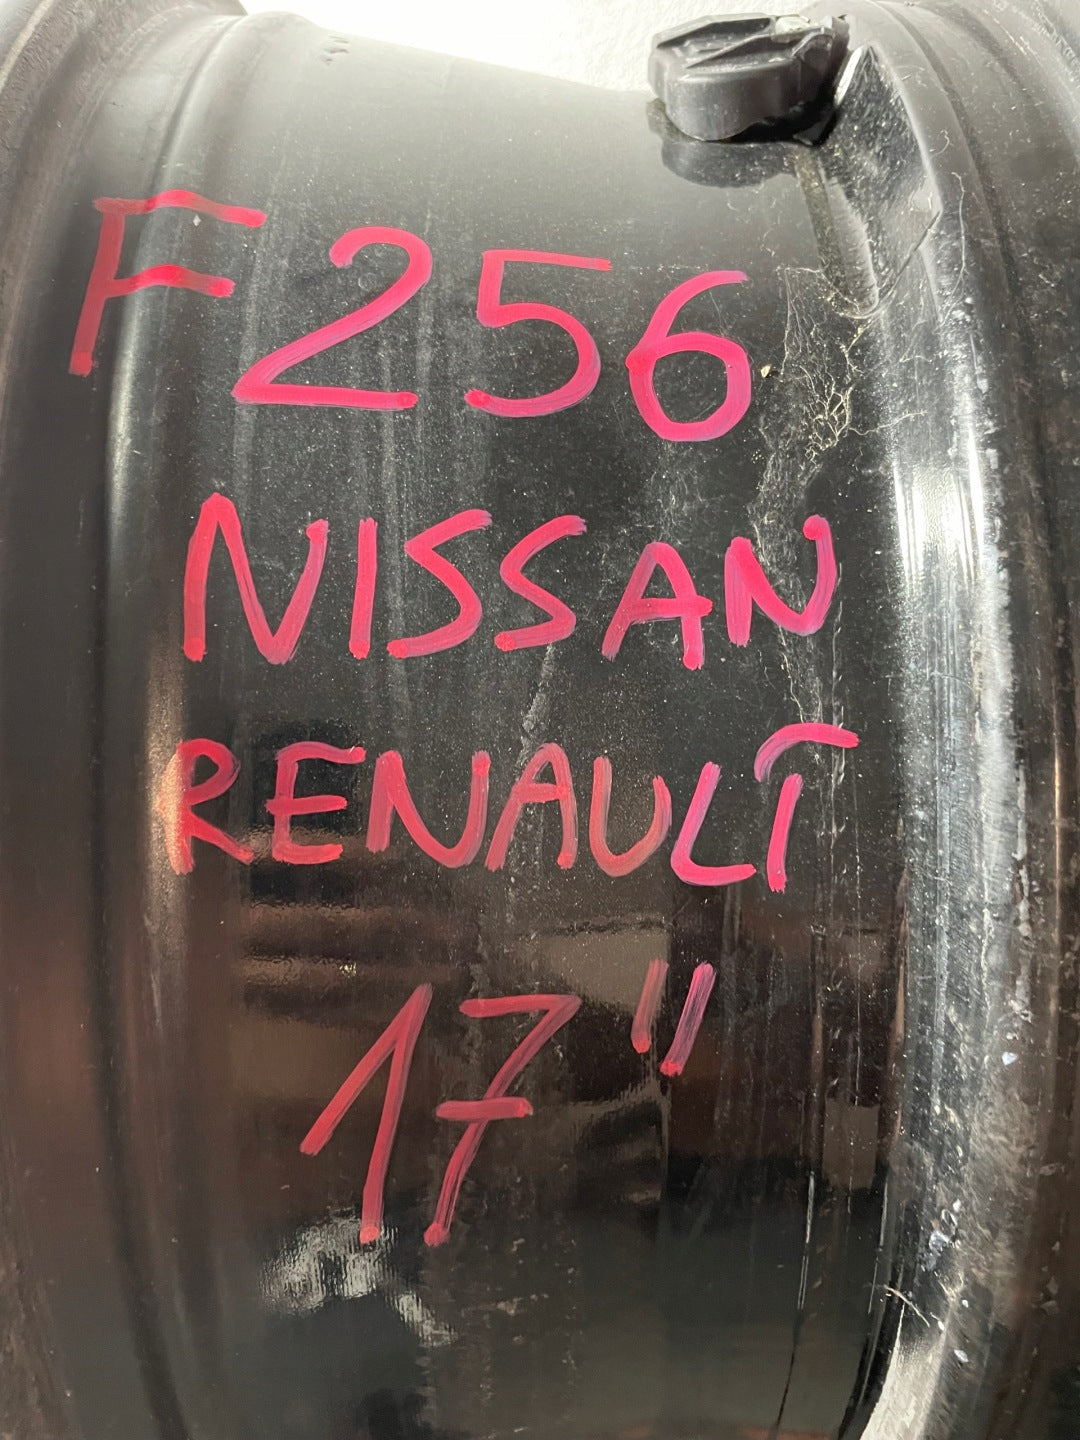 F256
NISSAN
RENAULT
17"